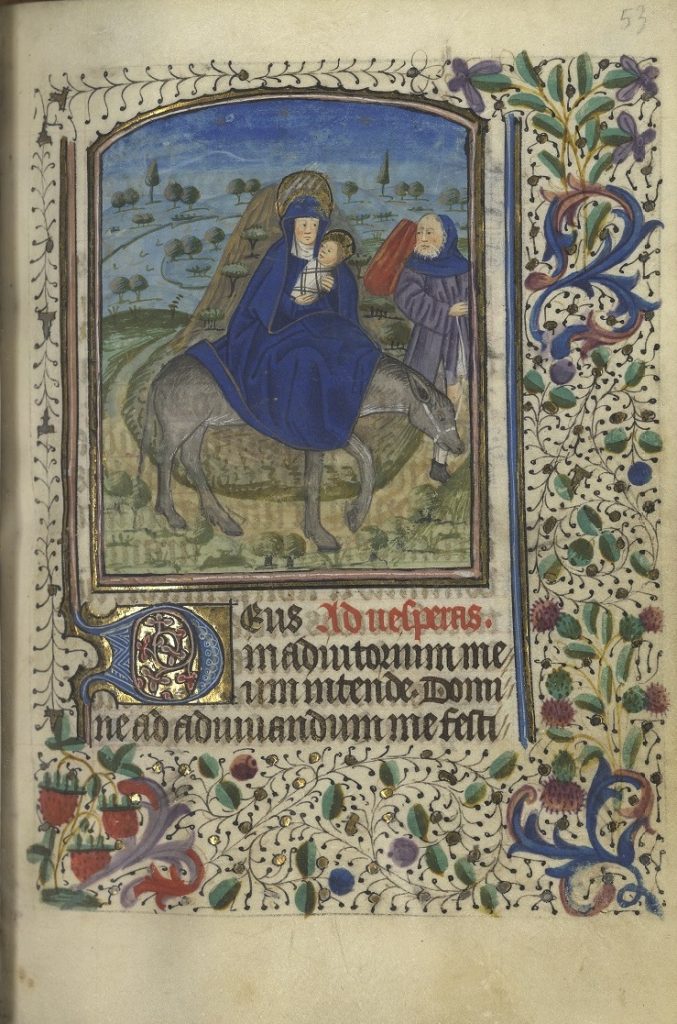 53
Deus Ad uesperas.
in adiutorium me
um intende. Domi
ne ad adiuuandum me festi